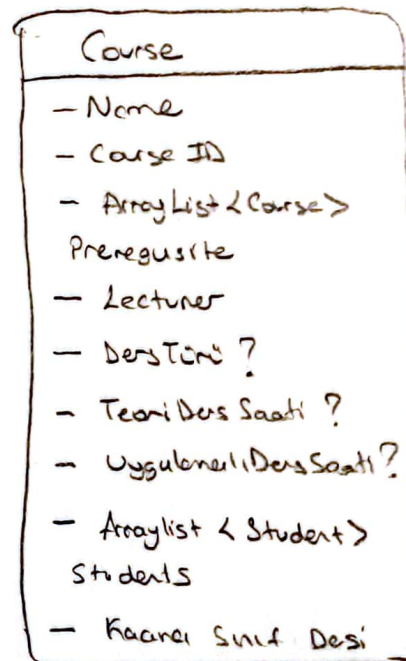 Course
- Name
- Course ID
- ArrayList<Course>
Prerequsite
- Lecturer
- Ders Türü ?
- Teori Ders Saati ?
- Uygulamalı Ders Saati ?
- Arraylist <Student>
Students
- Kaçıncı Sınıf Desi